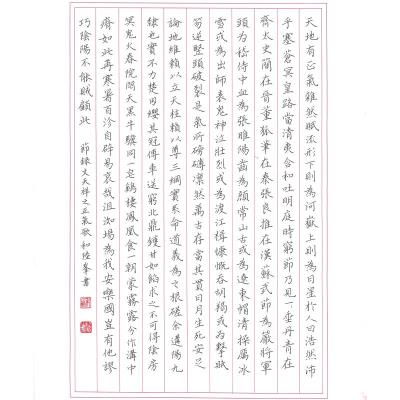 天地有正氣雜然賦流形下則為河嶽上則為日星於人曰浩然沛
乎塞蒼冥皇路當清夷含和吐明庭時窮節乃見一一垂丹青在
齊太史簡在晉董狐筆在秦張良椎在漢蘇武節為嚴將軍
頭為嵇侍中血為張睢陽齒為顏常山舌或為遼東帽清操厲冰
雪或為出師表鬼神泣壯烈或為渡江楫慷慨吞胡羯或為擊賊
笏逆豎頭破裂是氣所磅礡凜然萬古存當其貫日月生死安足
論地維賴以立天柱賴以尊三綱實系命道義為之根嗟余遘陽九
隸也實不力楚囚纓其冠傳車送窮北鼎鑊甘如飴求之不可得陰房
冥鬼火春院閟天黑牛驥同一皂鷄棲鳳凰食一朝蒙霧露分作溝中
瘠如此再寒暑百沴自辟易哀哉沮洳場為我安樂國豈有他謬
巧陰陽不能賊顧此 節錄文天祥之正氣歌 和 書